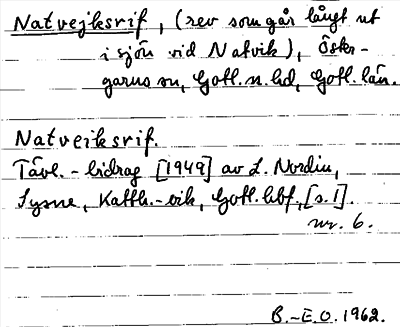 Natvejksrif, (rev som går långt ut
i sjön vid Natvik), Öster-
garns sn, Gotl. n. hd, Gotl. län.
Natveiksrif.
Tävl.-bidrag [1949] av L. Nordin,
Sysne, Katth.-vik, Gotl. hbf, [s. 1].
nr. 6.
B.-E.O. 1962.